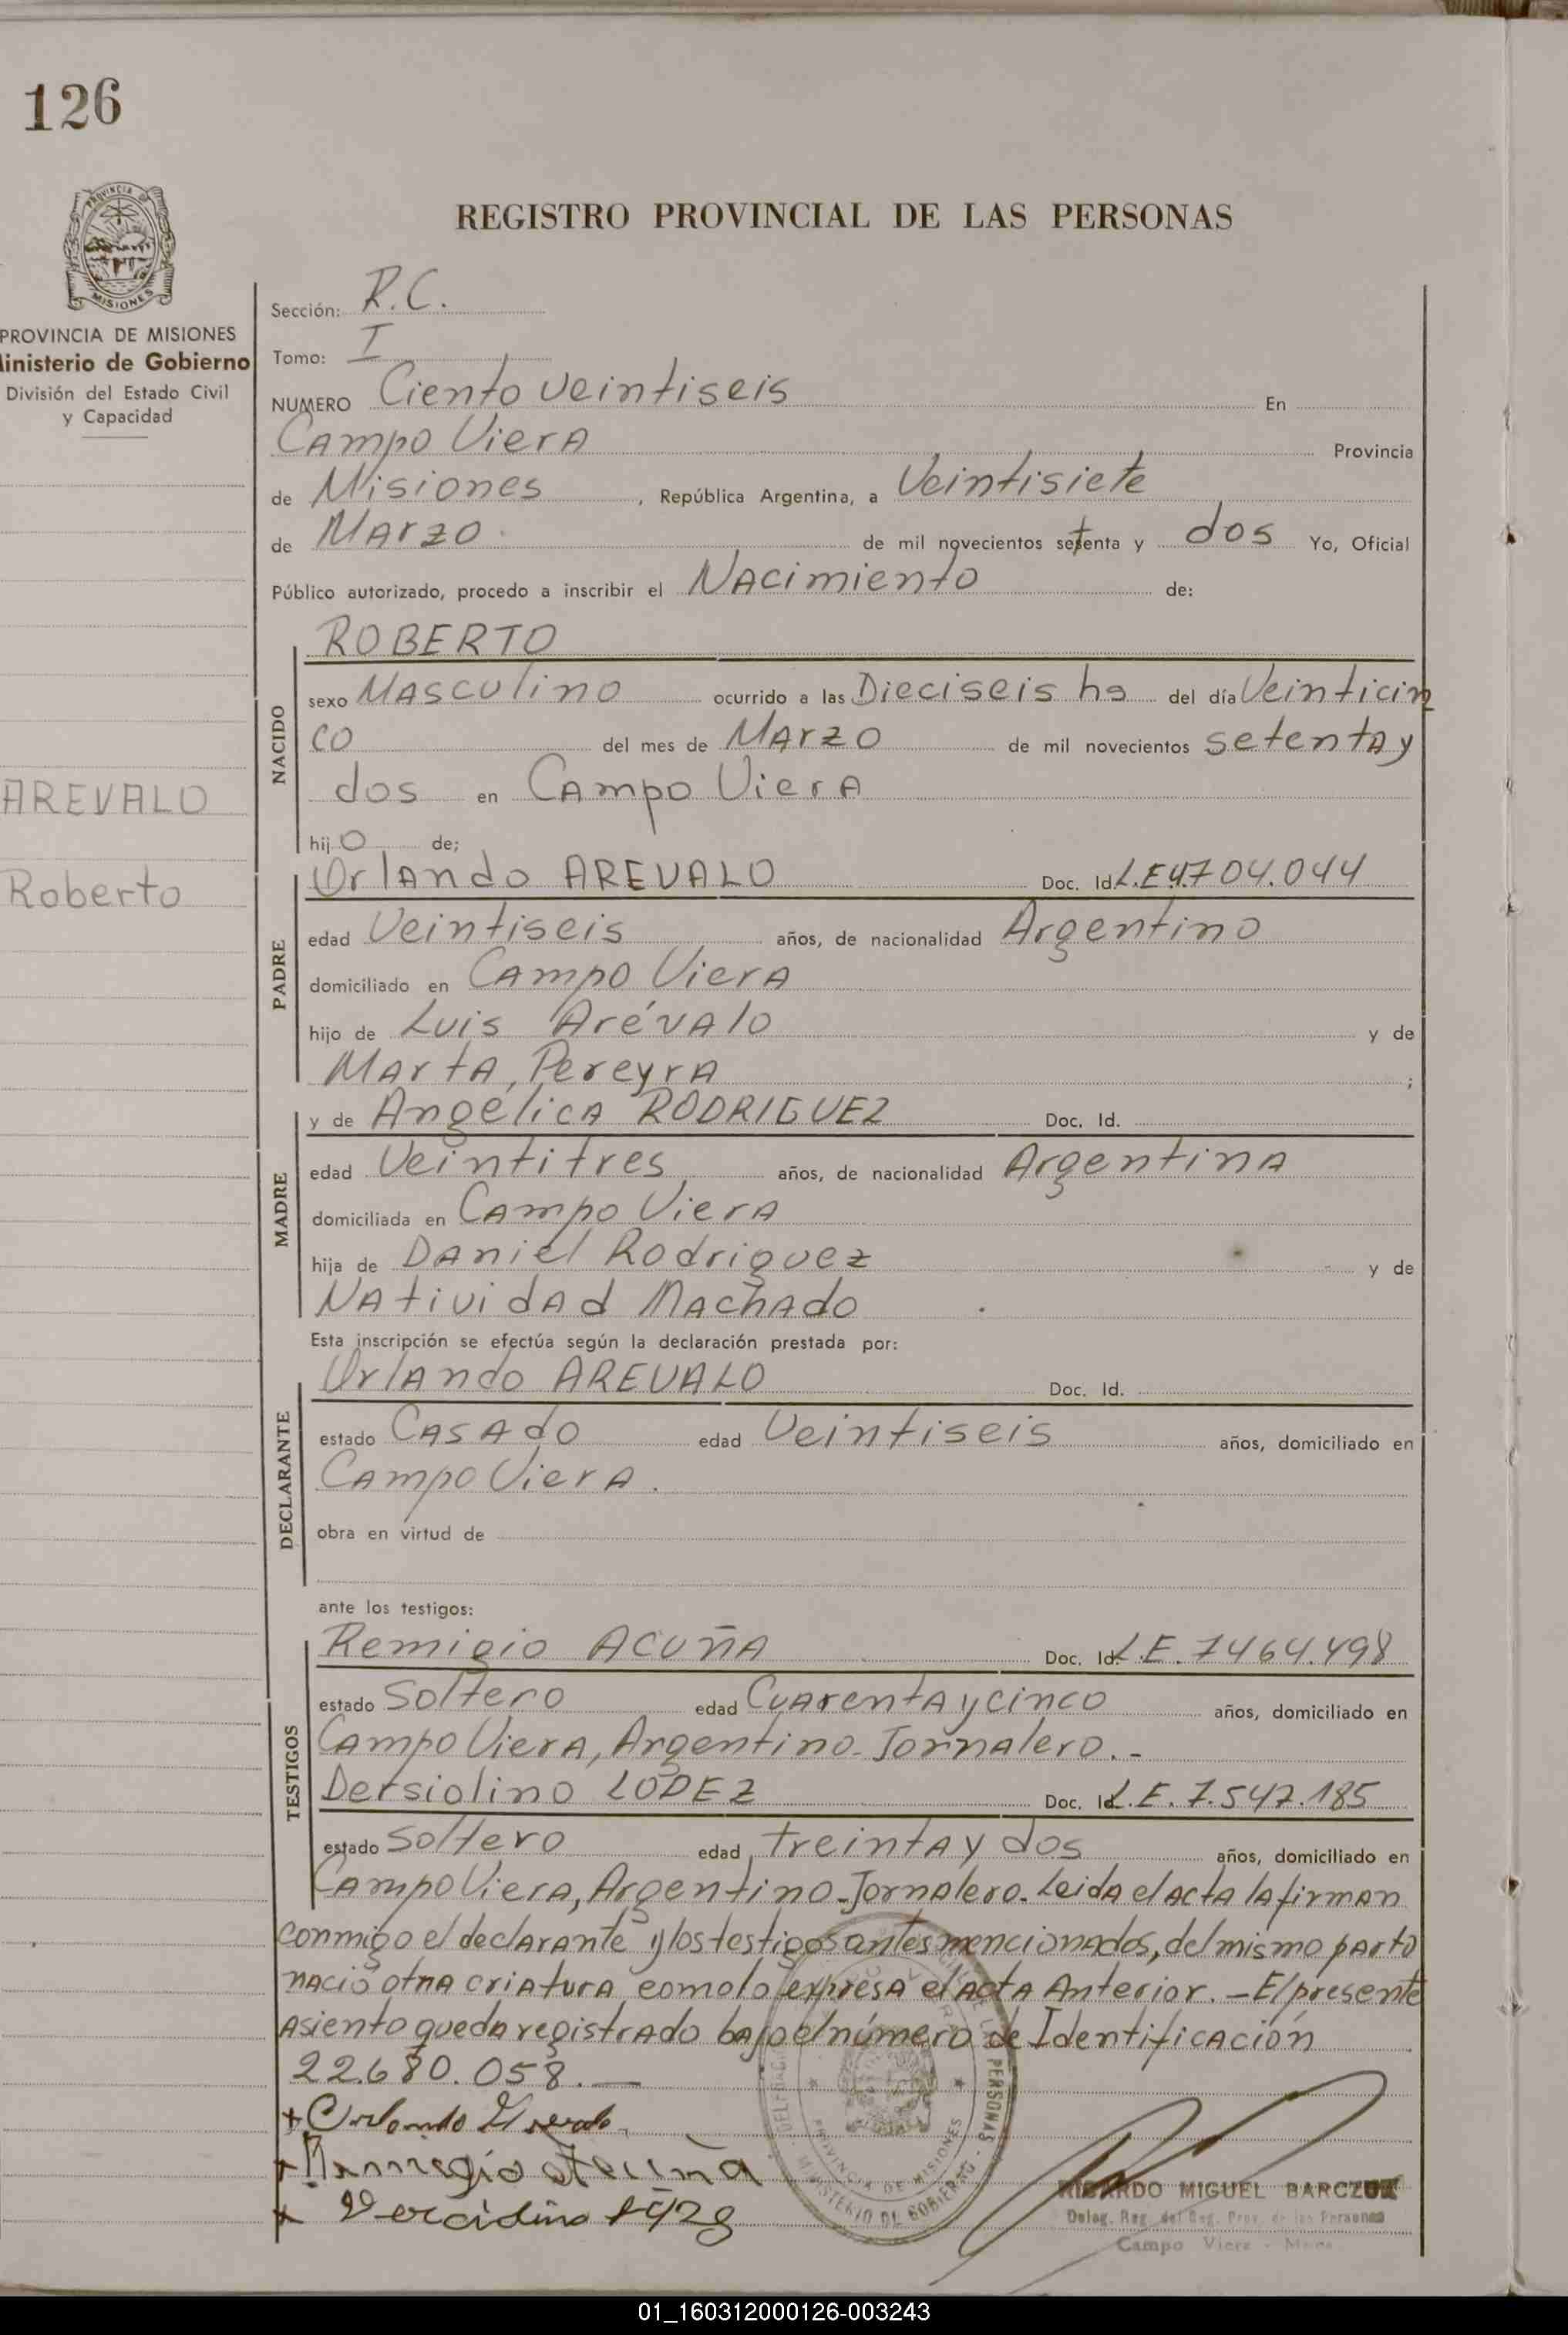 126
PROVINCIA DE
MISIONES
PROVINCIA DE MISIONES
Ministerio de Gobierno
División del Estado Civil
y Capacidad
AREVALO
Roberto
REGISTRO PROVINCIAL DE LAS PERSONAS
Sección: R.C.
Tomo: I
NUMERO Ciento veintiseis En
Campo Viera Provincia
de Misiones, República Argentina, a Veintisiete
de Marzo de mil novecientos setenta y dos Yo, Oficial
Público autorizado, procedo a inscribir el Nacimiento de:
NACIDO
ROBERTO
sexo Masculino ocurrido a las Dieciseis hs del día Veinticin
co del mes de Marzo de mil novecientos setenta y
dos en Campo Viera
hijo de;
PADRE
Orlando AREVALO Doc. Id. L.E 4.704.044
edad Veintiseis años, de nacionalidad Argentino
domiciliado en Campo Viera
hijo de Luis Arévalo y de
Marta, Pereyra ;
MADRE
y de Angélica RODRIGUEZ Doc. Id.
edad Veintitres años, de nacionalidad Argentina
domiciliada en Campo Viera
hija de Daniel Rodriguez y de
Natividad Machado
Esta inscripción se efectúa según la declaración prestada por:
DECLARANTE
Orlando AREVALO Doc. Id.
estado Casado edad Veintiseis años, domiciliado en
Campo Viera.
obra en virtud de
ante los testigos:
TESTIGOS
Remigio ACUÑA Doc. Id. L.E. 7464.498
estado Soltero edad Cuarenta y cinco años, domiciliado en
Campo Viera, Argentino - Jornalero.-
Dersiolino LOPEZ Doc. Id. L.E. 7.547.185
estado Soltero edad treinta y dos años, domiciliado en
Campo Viera, Argentino - Jornalero. Leida el acta la firman
conmigo el declarante y los testigos antes mencionados, del mismo parto
nació otra criatura como lo expresa el acta Anterior. - El presente
asiento queda registrado bajo el número de Identificación
22.680.058.-
+ Orlando Arevalo
+ Remigio Acuña
+
PROVINCIA DE MISIONES
MINISTERIO DE GOBIERNO
RICARDO MIGUEL BARCZUK
Deleg. Reg. del Reg. Prov. de las Personas
Campo Viera - Mnes.
01_160312000126-003243